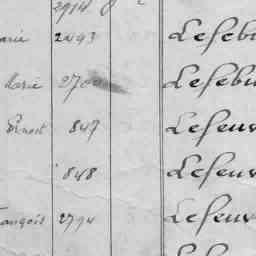 2914
arie 2493 Lefebu
Marie 270 Lefebu
Ernest 847 Lefeuv
848 Lefeuv
rançois 2794 Lefeuv